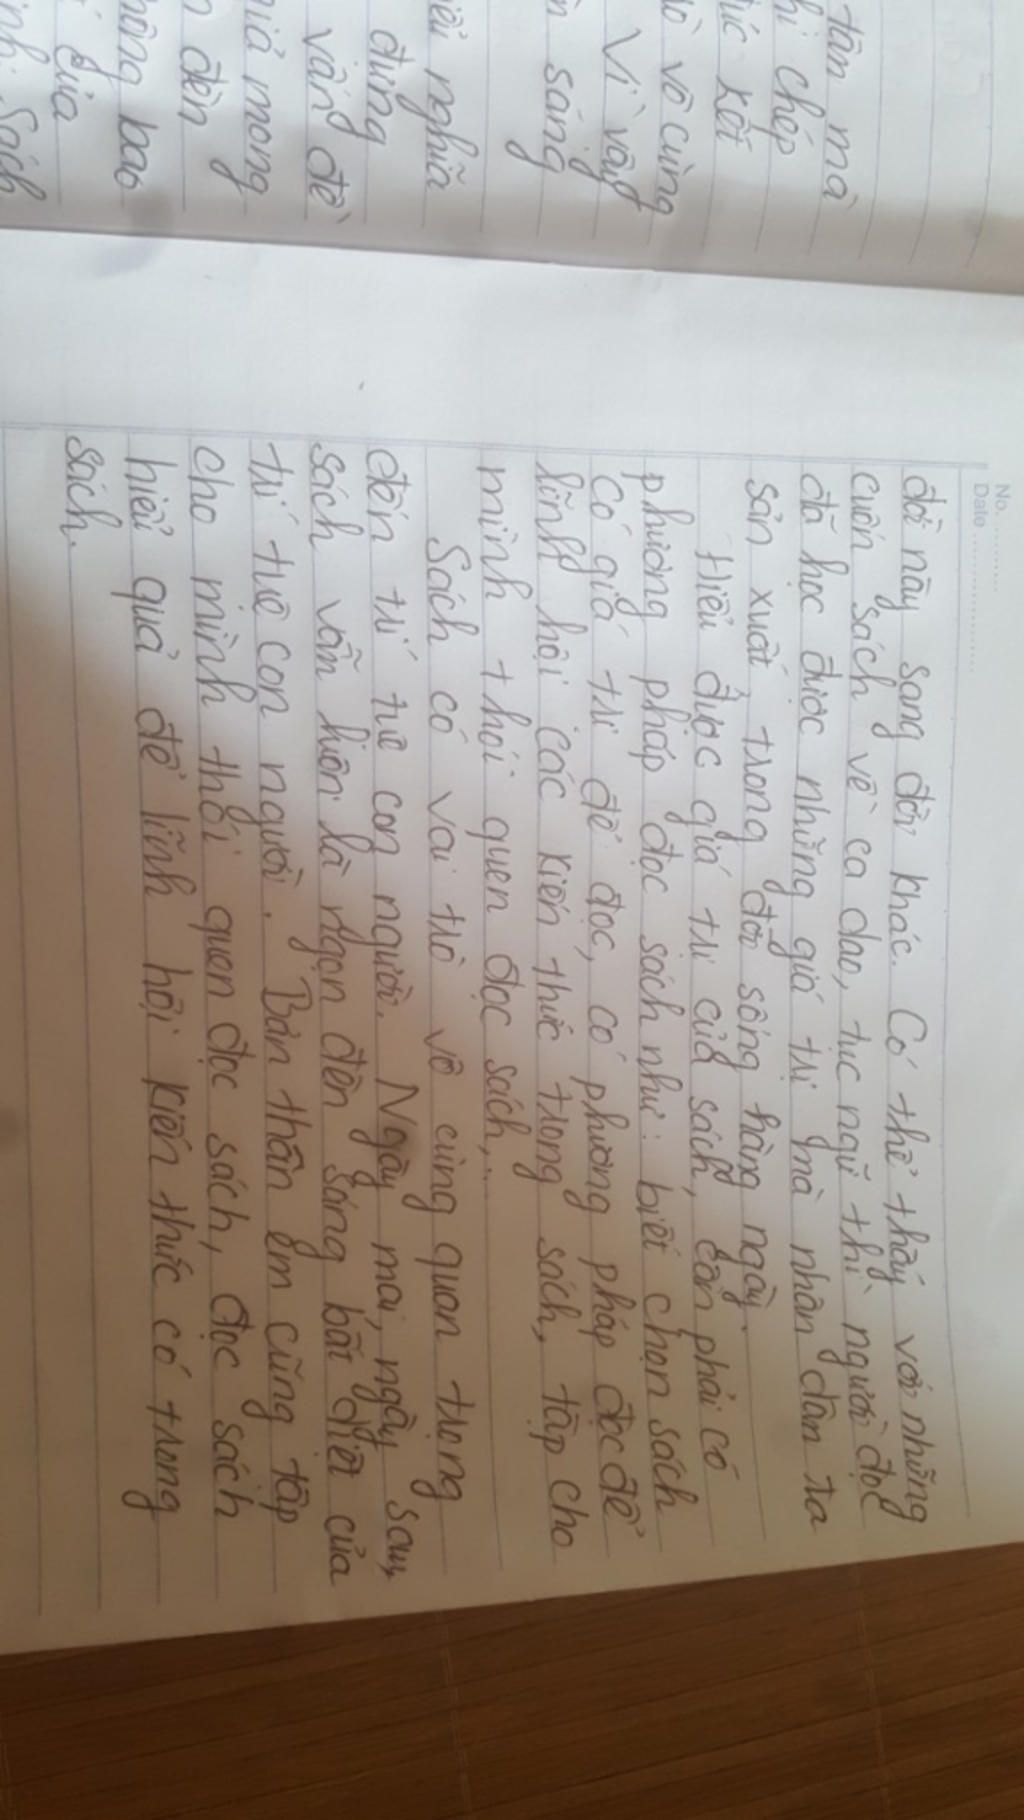 tâm mà
chép
úc kết
vô cùng
Vì vậy
sáng
nghĩa
đúng
vấn đề
giả mong
đèn
bao
của
Sách
No. ............
Date ........................
đời này sang đời khác. Có thể thấy với những
cuốn sách về ca dao, tục ngữ thì người đọc
đã học được những giá trị mà nhân dân ta
sản xuất trong đời sống hàng ngày.
Hiểu được giá trị của sách, cần phải có
phương pháp đọc sách như: biết chọn sách
có giá trị để đọc, có phương pháp đọc để
lĩnh hội các kiến thức trong sách, tập cho
mình thói quen đọc sách,...
Sách có vai trò vô cùng quan trọng
đến trí tuệ con người. Ngày mai, ngày sau,
sách vẫn luôn là ngọn đèn sáng bất diệt của
trí tuệ con người. Bản thân em cũng tập
cho mình thói quen đọc sách, đọc sách
hiểu quả để lĩnh hội kiến thức có trong
sách.